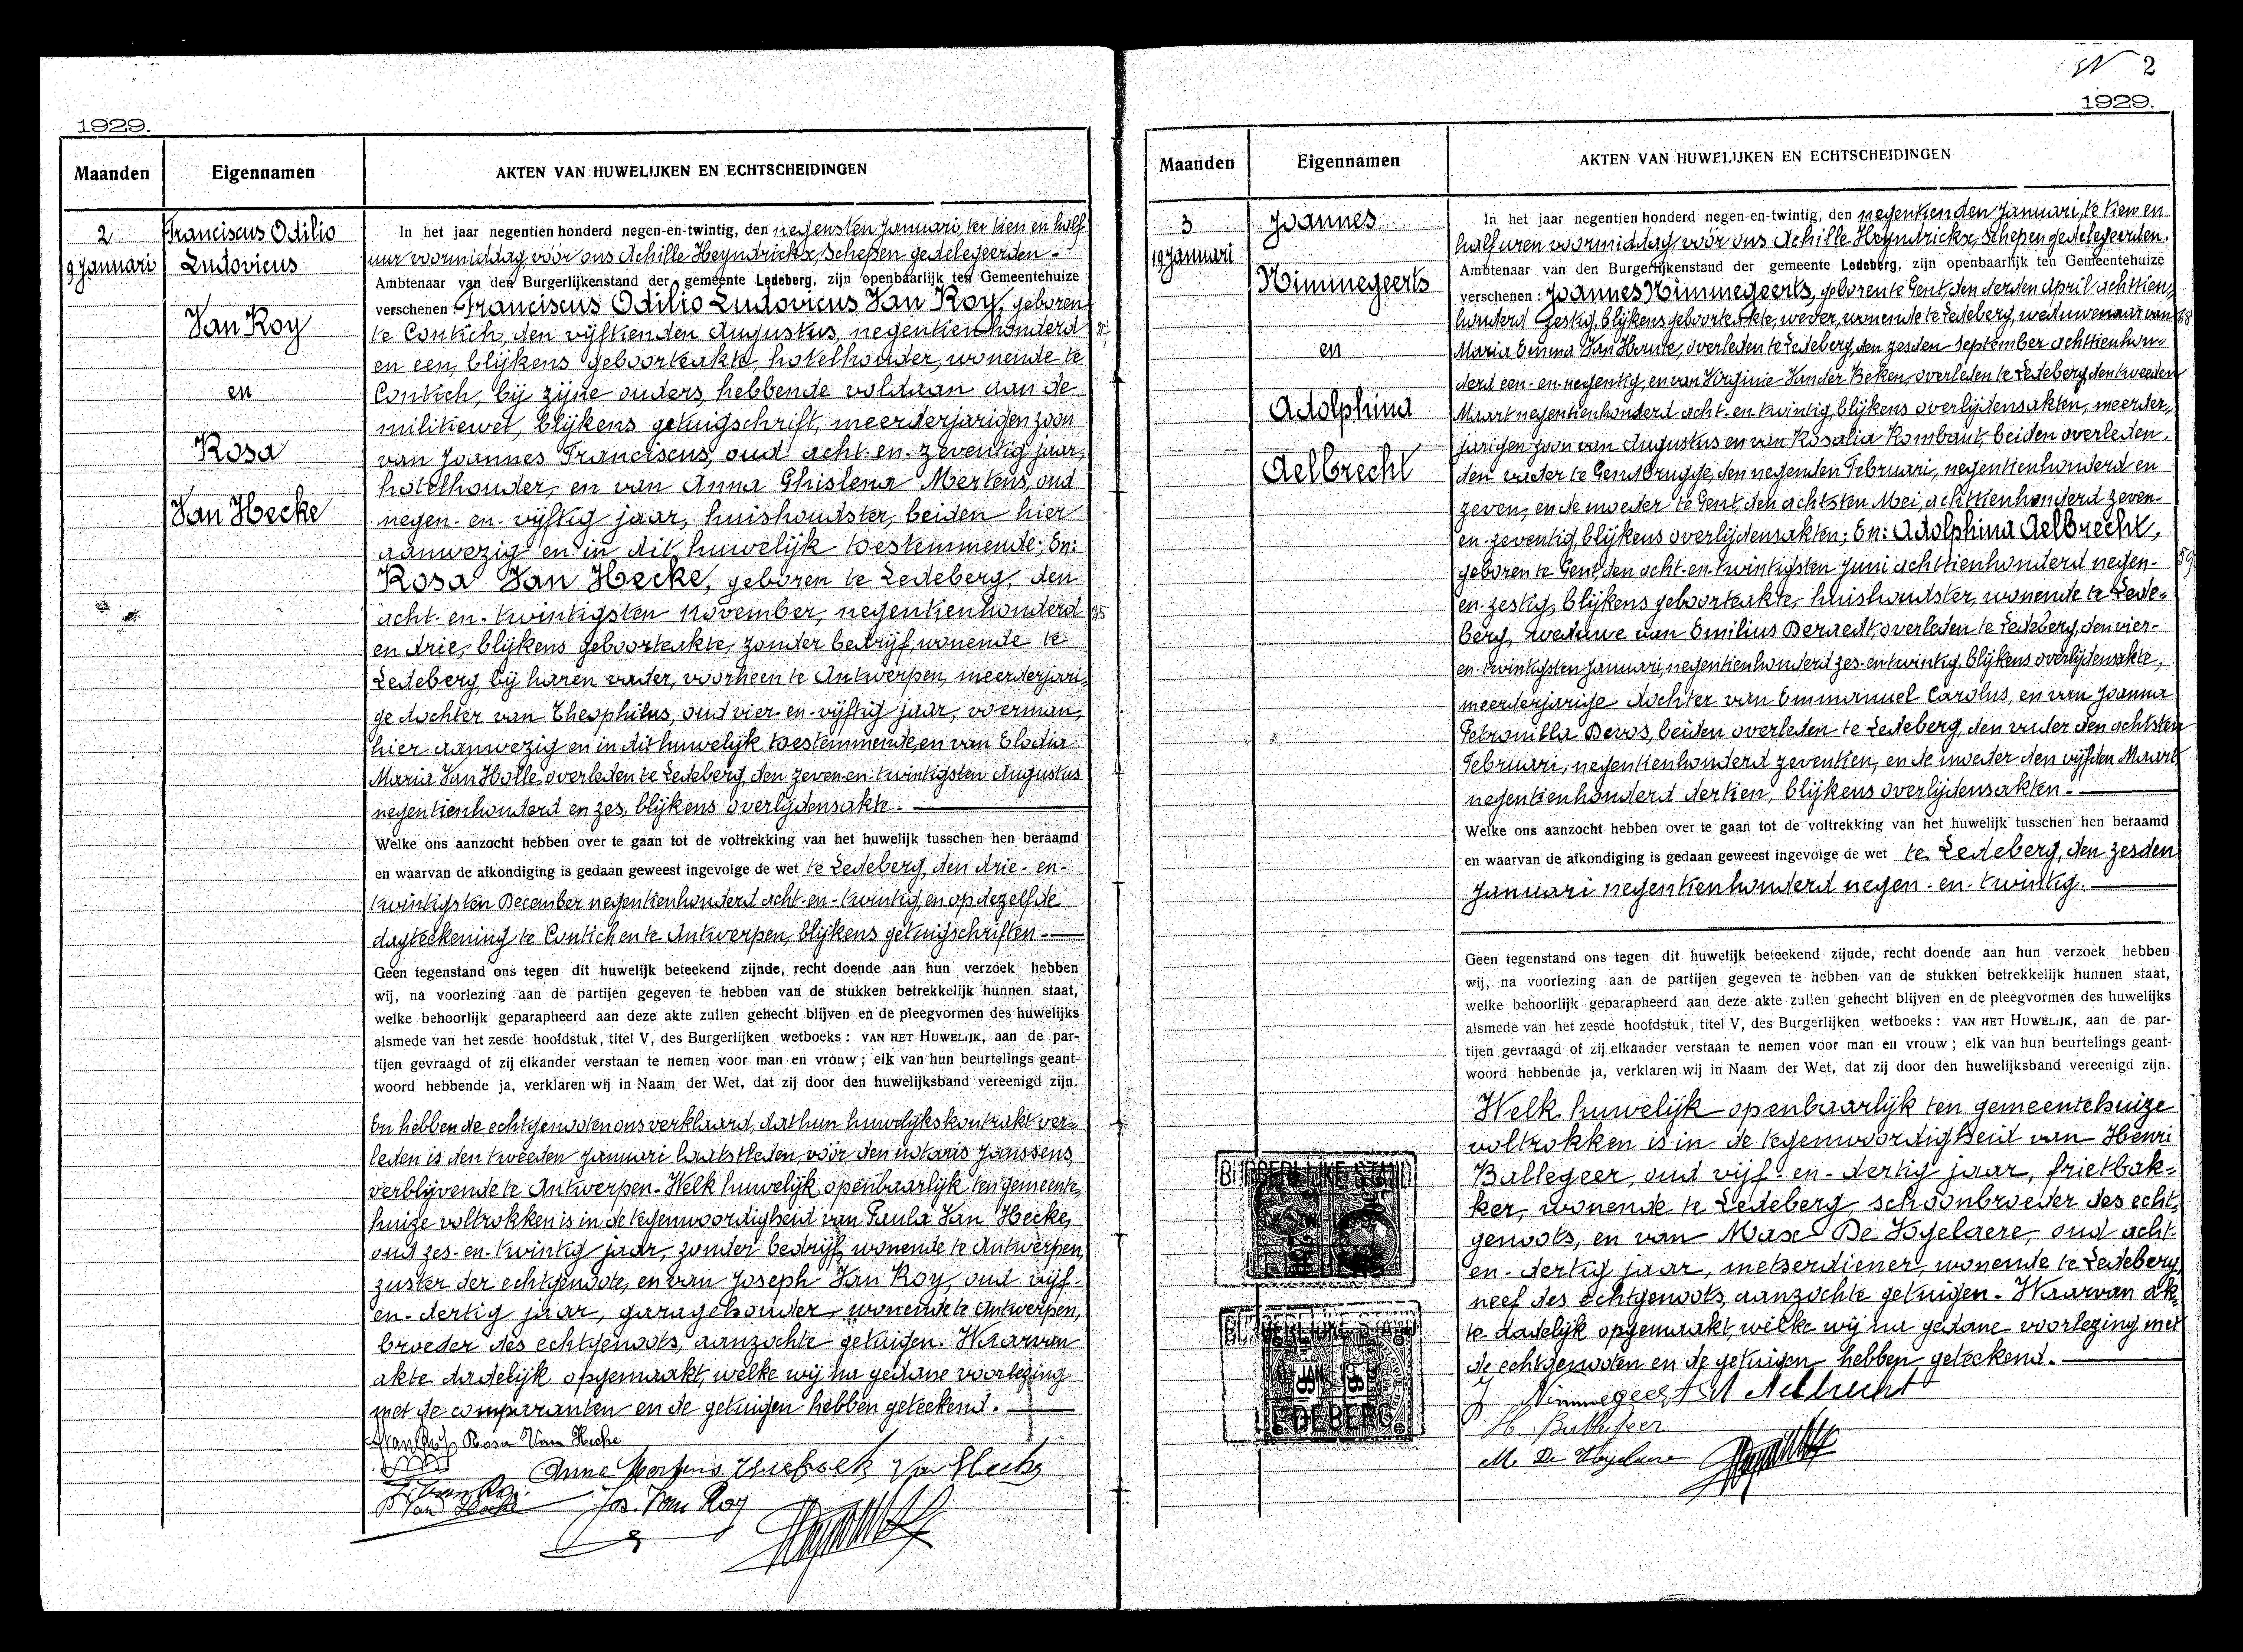 1929.
Maanden
Eigennamen
AKTEN VAN HUWELIJKEN EN ECHTSCHEIDINGEN
2
9 Januari
Franciscus Odilio
Ludovicus
Van Roy
en
Rosa
Van Hecke
In het jaar negentien honderd negen-en-twintig, den negensten Januari, ter tien en half
uur voormiddag, vóór ons Achille Heyndrickx, Schepen gedelegeerden.-
Ambtenaar van den Burgerlijkenstand der gemeente Ledeberg, zijn openbaarlijk ten Gemeentehuize
verschenen Franciscus Odilio Ludovicus Van Roy, geboren
te Contich, den vijftienden Augustus, negentienhonderd
en een, blijkens geboorteakte, hotelhouder, wonende te
Contich, bij zijne ouders, hebbende voldaan aan de
militiewet, blijkens getuigschrift, meerderjarigen zoon
van Joannes Franciscus, oud acht-en-zeventig jaar,
hotelhouder, en van Anna Ghislena Mertens, oud
negen-en-vijftig jaar, huishoudster, beiden hier
aanwezig en in dit huwelijk toestemmende; En:
Rosa Van Hecke, geboren te Ledeberg, den
acht-en-twintigsten November, negentienhonderd
en drie, blijkens geboorteakte, zonder bedrijf, wonende te
Ledeberg, bij haren vader, voorheen te Antwerpen, meerderjari-
ge dochter van Theophilus, oud vier-en-vijftig jaar, voerman,
hier aanwezig en in dit huwelijk toestemmende, en van Elodia
Maria Van Holle, overleden te Ledeberg, den zeven-en-twintigsten Augustus
negentienhonderd en zes, blijkens overlijdensakte.-
Welke ons aanzocht hebben over te gaan tot de voltrekking van het huwelijk tusschen hen beraamd
en waarvan de afkondiging is gedaan geweest ingevolge de wet te Ledeberg, den drie-en-
twintigsten December negentienhonderd acht-en-twintig, en op dezelfde
dagteekening te Contich en te Antwerpen, blijkens getuigschriften.-
Geen tegenstand ons tegen dit huwelijk beteekend zijnde, recht doende aan hun verzoek hebben
wij, na voorlezing aan de partijen gegeven te hebben van de stukken betrekkelijk hunnen staat,
welke behoorlijk geparapheerd aan deze akte zullen gehecht blijven en de pleegvormen des huwelijks
alsmede van het zesde hoofdstuk, titel V, des Burgerlijken wetboeks : VAN HET HUWELIJK, aan de par-
tijen gevraagd of zij elkander verstaan te nemen voor man en vrouw ; elk van hun beurtelings geant-
woord hebbende ja, verklaren wij in Naam der Wet, dat zij door den huwelijksband vereenigd zijn.
En hebben de echtgenooten ons verklaard, dat hun huwelijkskontrakt ver-
leden is den tweeden Januari laatstleden, vóór den notaris Janssens,
verblijvende te Antwerpen.- Welk huwelijk openbaarlijk ten gemeente-
huize voltrokken is in de tegenwoordigheid van Paula Van Hecke,
oud zes-en-twintig jaar, zonder bedrijf, wonende te Antwerpen,
zuster der echtgenoote, en van Joseph Van Roy, oud vijf-
en-dertig jaar, garagehouder, wonende te Antwerpen,
broeder des echtgenoots, aanzochte getuigen. Waarvan
akte dadelijk opgemaakt, welke wij na gedane voorlezing
met de comparanten en de getuigen hebben geteekend.-
Rosa Van Hecke
Anna Mertens Van Hecke
Jos. Van Roy
2
1929.
Maanden
Eigennamen
AKTEN VAN HUWELIJKEN EN ECHTSCHEIDINGEN
3
19 Januari
Joannes
Nimmegeerts
en
Adolphina
Aelbrecht
In het jaar negentien honderd negen-en-twintig, den negentienden Januari, te tien en
half uren voormiddag, vóór ons Achille Heyndrickx, Schepen gedelegeerden.
Ambtenaar van den Burgerlijkenstand der gemeente Ledeberg, zijn openbaarlijk ten Gemeentehuize
verschenen : Joannes Nimmegeerts, geboren te Gent, den derden April achttien-
honderd zestig, blijkens geboorteakte, wever, wonende te Ledeberg, weduwenaar van 68
Maria Emma Van Houte, overleden te Ledeberg, den zesden September achttienhon-
derd een-en-negentig, en van Virginie Vander Beken, overleden te Ledeberg, den tweeden
Maart negentienhonderd acht-en-twintig, blijkens overlijdensakten, meerder-
jarigen zoon van Augustus en van Rosalia Rombaut, beiden overleden,
den vader te Gentbrugge, den negenden Februari, negentienhonderd en
zeven, en de moeder te Gent, den achtsten Mei, achttienhonderd zeven-
en-zeventig, blijkens overlijdensakten; En: Adolphina Aelbrecht,
geboren te Gent, den acht-en-twintigsten Juni achttienhonderd negen- 59
en-zestig, blijkens geboorteakte, huishoudster, wonende te Lede-
berg, weduwe van Emilius Deraedt, overleden te Ledeberg, den vier-
en-twintigsten Januari, negentienhonderd zes-en-twintig, blijkens overlijdensakte,
meerderjarige dochter van Emmanuel Carolus, en van Joanna
Petronilla Devos, beiden overleden te Ledeberg, den vader den achtsten
Februari, negentienhonderd zeventien, en de moeder den vijfden Maart
negentienhonderd dertien, blijkens overlijdensakten.-
Welke ons aanzocht hebben over te gaan tot de voltrekking van het huwelijk tusschen hen beraamd
en waarvan de afkondiging is gedaan geweest ingevolge de wet te Ledeberg, den zesden
Januari negentienhonderd negen-en-twintig.-
Geen tegenstand ons tegen dit huwelijk beteekend zijnde, recht doende aan hun verzoek hebben
wij, na voorlezing aan de partijen gegeven te hebben van de stukken betrekkelijk hunnen staat,
welke behoorlijk geparapheerd aan deze akte zullen gehecht blijven en de pleegvormen des huwelijks
alsmede van het zesde hoofdstuk, titel V, des Burgerlijken wetboeks : VAN HET HUWELIJK, aan de par-
tijen gevraagd of zij elkander verstaan te nemen voor man en vrouw ; elk van hun beurtelings geant-
woord hebbende ja, verklaren wij in Naam der Wet, dat zij door den huwelijksband vereenigd zijn.
Welk huwelijk openbaarlijk ten gemeentehuize
voltrokken is in de tegenwoordigheid van Henri
Ballegeer, oud vijf-en-dertig jaar, frietbak-
ker, wonende te Ledeberg, schoonbroeder des echt-
genoots, en van Max De Vogelaere, oud acht-
en-dertig jaar, metserdiener, wonende te Ledeberg,
neef des echtgenoots, aanzochte getuigen.- Waarvan ak-
te dadelijk opgemaakt, welke wij na gedane voorlezing met
de echtgenooten en de getuigen hebben geteekend.-
J Nimmegeerts A Aelbrecht
H. Ballegeer
M. De Vogelaere
LEDEBERG